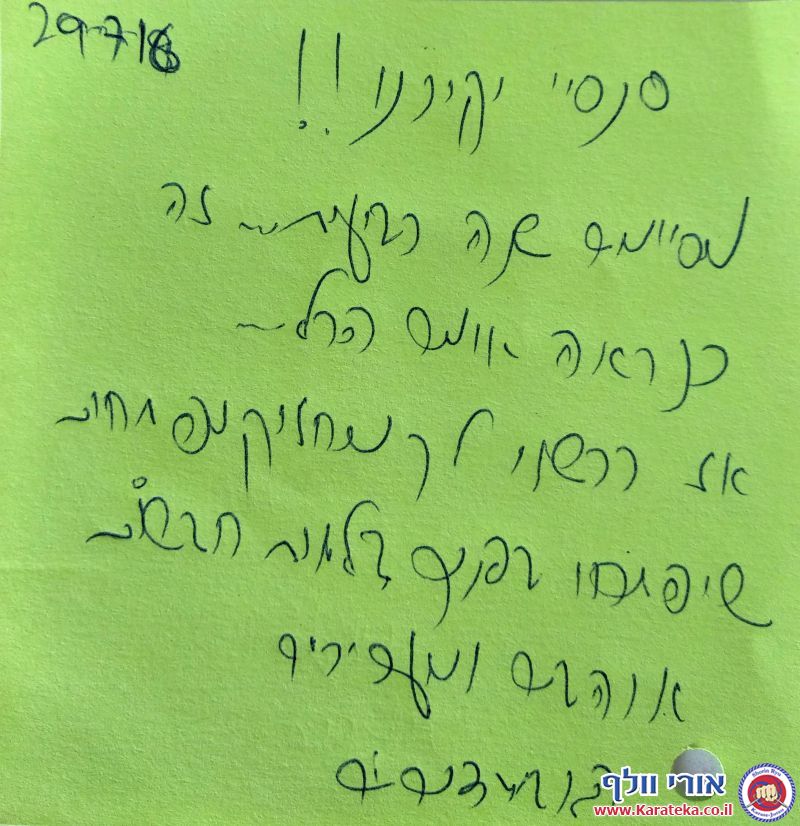 29-7-16
סנסיי יקירנו!!
מסיימים שנה רביעית... זה
כנראה אומר הכל...
אז הרשנו לך מחזיק מפתחות
שיפתחו בפניך דלתות חדשות
אוהבים ומעריכים
אורי וולף
www.Karateka.co.il